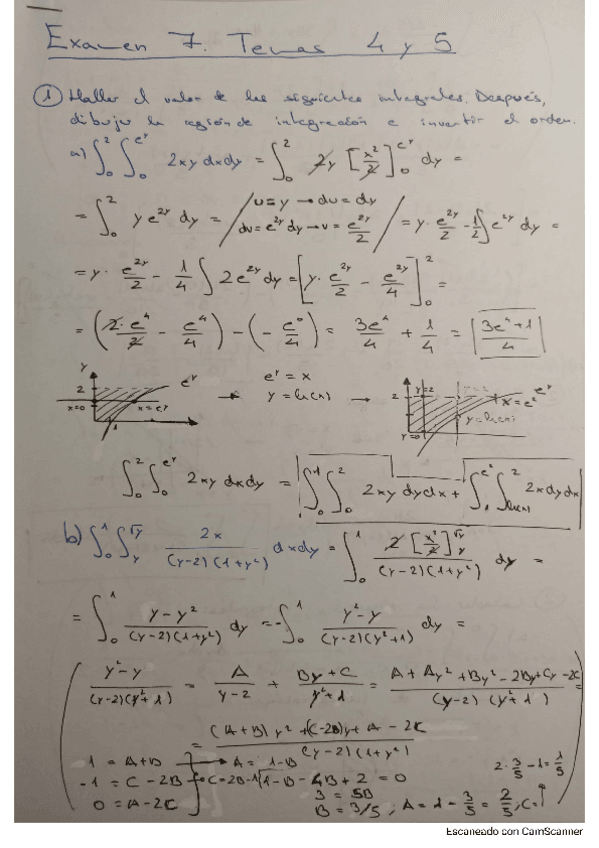 Examen 7. Temas 4 y 5
① Hallar el valor de las siguientes integrales. Después,
dibujar la región de integración e invertir el orden.
a) ∫₀² ∫₀^{e^y} 2xy dxdy = ∫₀² 2y [x²/2]₀^{e^y} dy =
= ∫₀² y e^{2y} dy = / u = y → du = dy / dv = e^{2y} dy → v = e^{2y}/2 / = y · e^{2y}/2 - 1/2 ∫ e^{2y} dy =
= y · e^{2y}/2 - 1/4 ∫ 2e^{2y} dy = [y · e^{2y}/2 - e^{2y}/4]₀² =
= (2·e⁴/2 - e⁴/4) - (- e⁰/4) = 3e⁴/4 + 1/4 = 3e⁴+1/4
y 2 x=0 1 x=e^y e^y → e^y = x → 2 y=2 y=2 x=e² e^y
y = ln(x) y=ln(x) y=0
∫₀² ∫₀^{e^y} 2xy dxdy = ∫₀¹ ∫₀² 2xy dydx + ∫₁^{e²} ∫_{ln(x)}² 2x dydx
b) ∫₀¹ ∫_y^{√y} 2x/(y-2)(1+y²) dxdy = ∫₀¹ 2 [x²/2]_y^{√y}/(y-2)(1+y²) dy =
= ∫₀¹ y-y²/(y-2)(1+y²) dy = - ∫₀¹ y²-y/(y-2)(y²+1) dy =
y²-y/(y-2)(y²+1) = A/y-2 + By+C/y²+1 = A+Ay²+By²-2By+Cy-2C/(y-2)(y²+1) =
= (A+B)y²+(C-2B)y+A-2C/(y-2)(1+y²)
1 = A+B → A = 1-B
-1 = C-2B → C=2B-1 1-B-4B+2 = 0 2·3/5-1=1/5
0 = A-2C 3 = 5B
B = 3/5 ; A = 1-3/5 = 2/5 ; C=↑
Escaneado con CamScanner